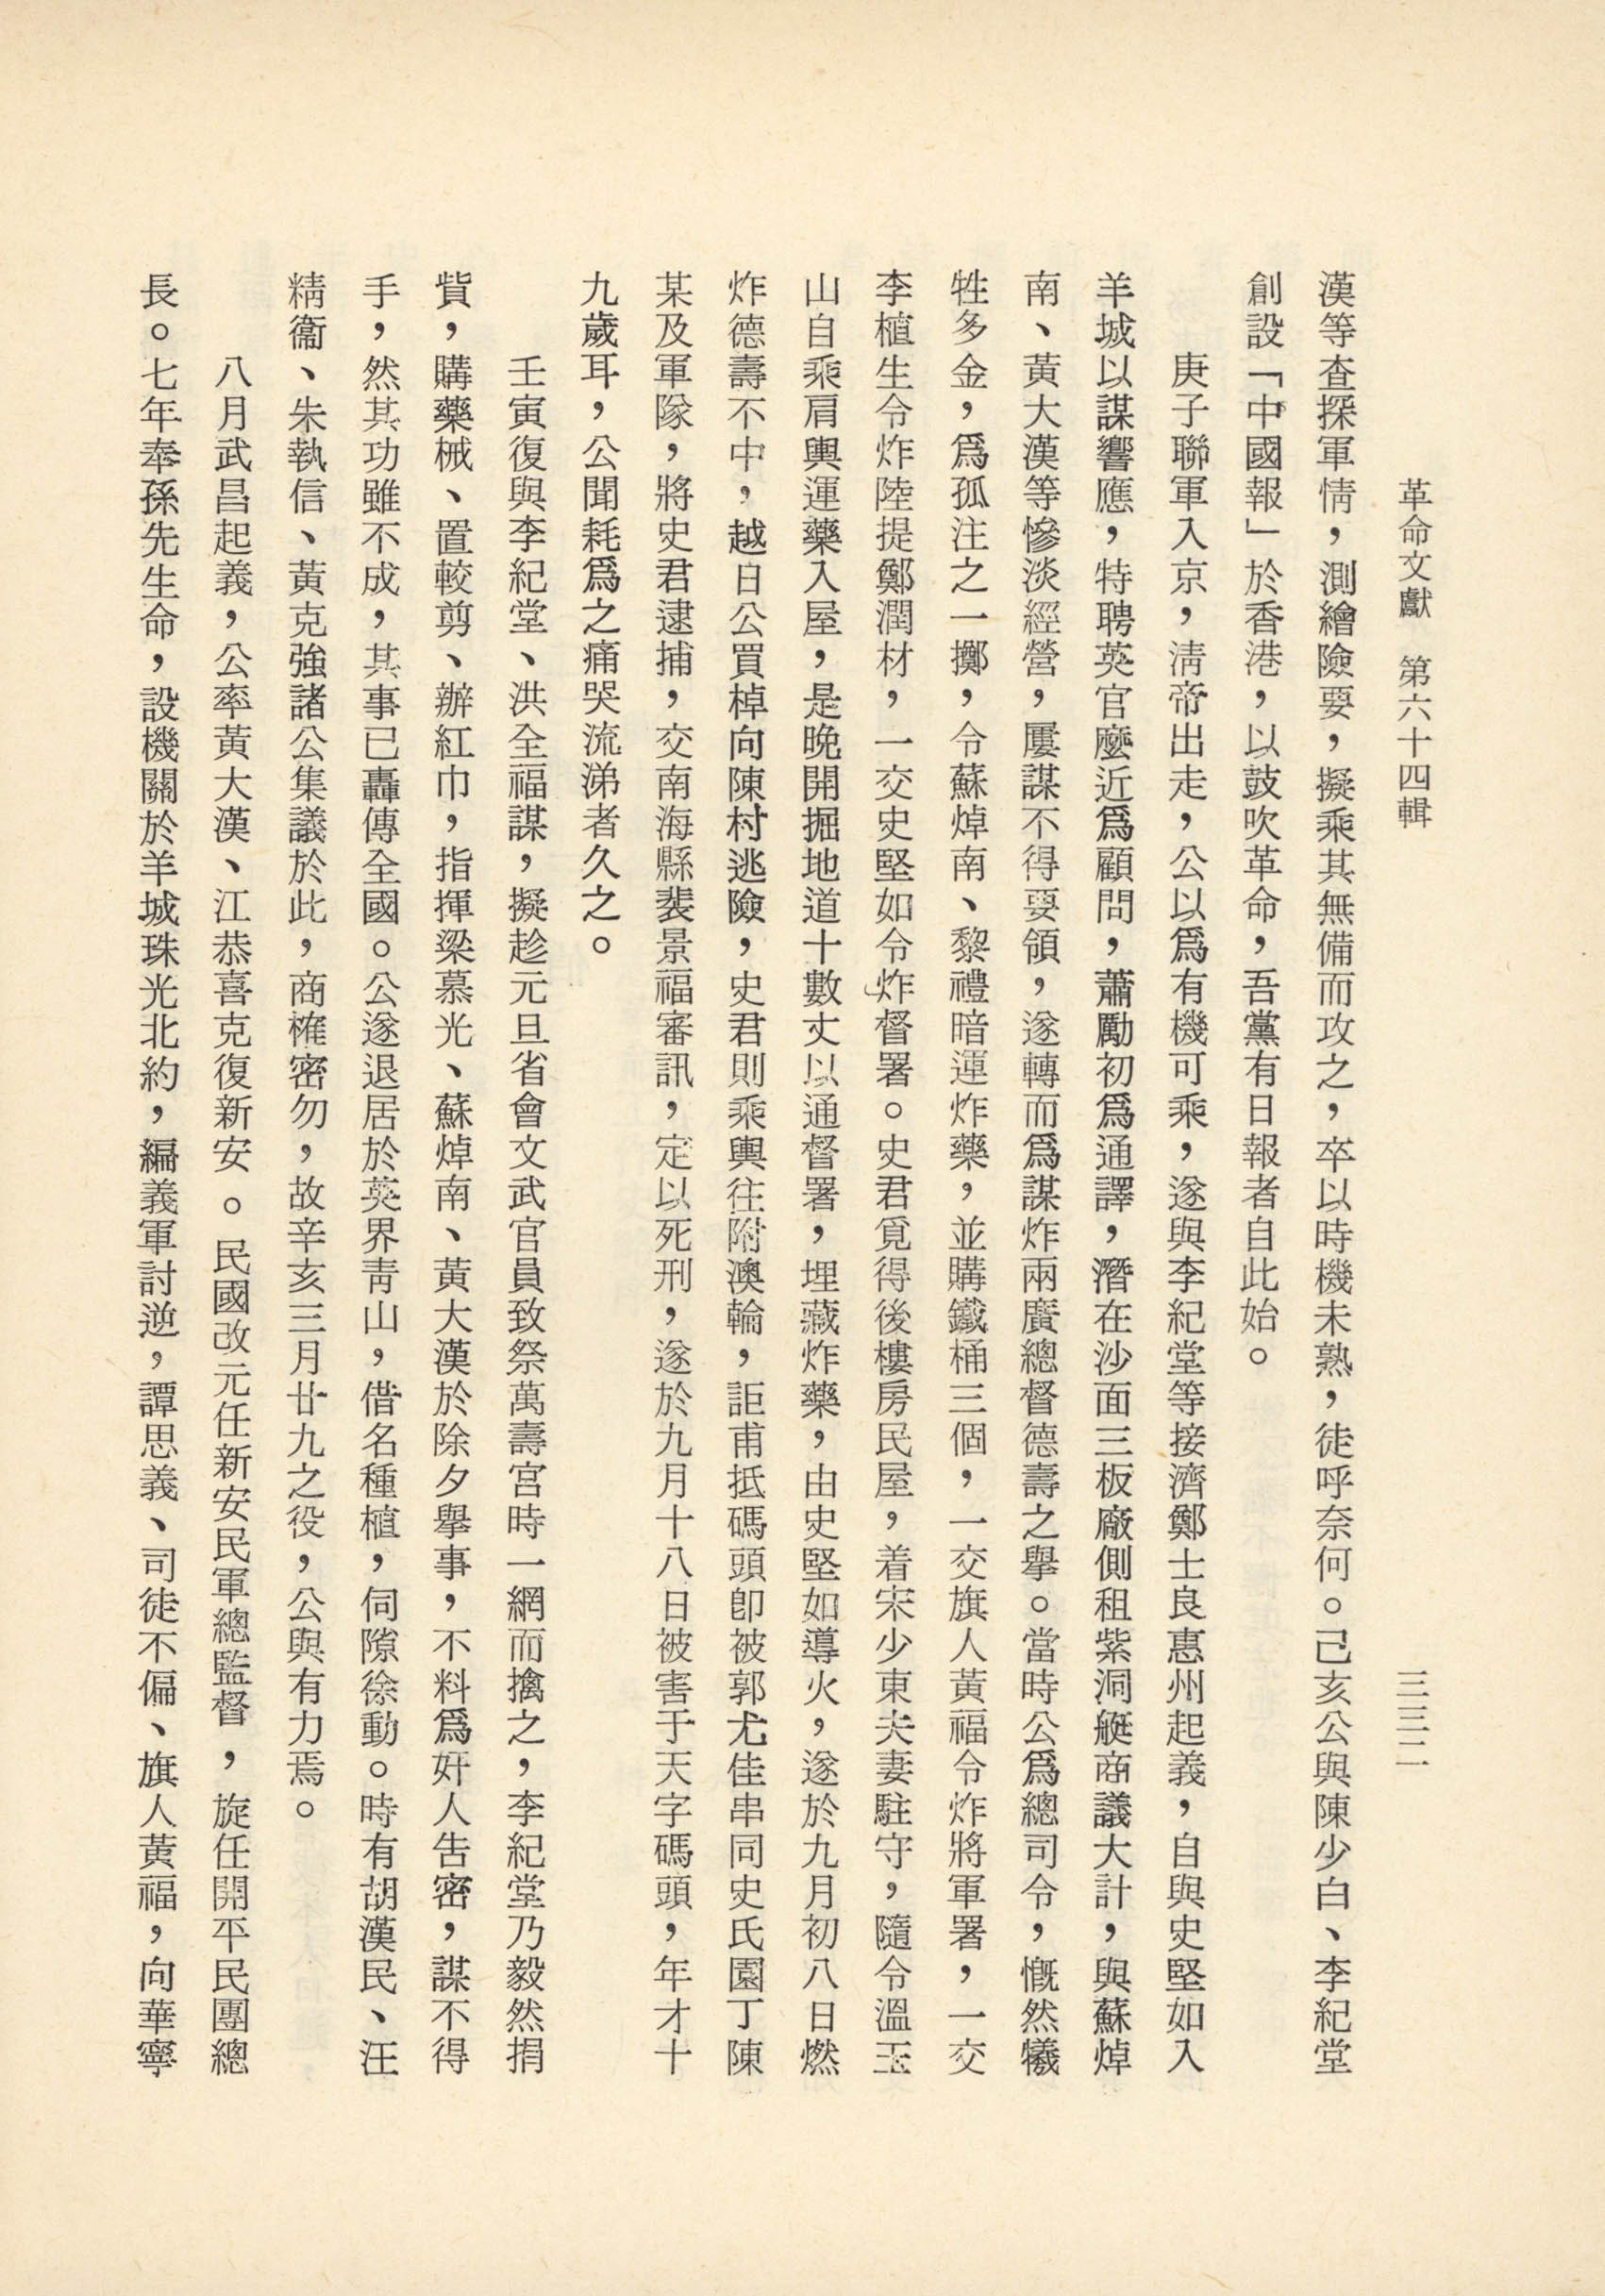 革命文獻　第六十四輯　三三二
漢等查探軍情，測繪險要，擬乘其無備而攻之，卒以時機未熟，徒呼奈何。己亥公與陳少白、李紀堂
創設「中國報」於香港，以鼓吹革命，吾黨有日報者自此始。
庚子聯軍入京，淸帝出走，公以爲有機可乘，遂與李紀堂等接濟鄭士良惠州起義，自與史堅如入
羊城以謀響應，特聘英官麼近爲顧問，蕭勵初爲通譯，潛在沙面三板廠側租紫洞艇商議大計，與蘇焯
南、黃大漢等慘淡經營，屢謀不得要領，遂轉而爲謀炸兩廣總督德壽之擧。當時公爲總司令，慨然犧
牲多金，爲孤注之一擲，令蘇焯南、黎禮暗運炸藥，並購鐵桶三個，一交旗人黃福令炸將軍署，一交
李植生令炸陸提鄭潤材，一交史堅如令炸督署。史君覓得後樓房民屋，着宋少東夫妻駐守，隨令溫玉
山自乘肩輿運藥入屋，是晚開掘地道十數丈以通督署，埋藏炸藥，由史堅如導火，遂於九月初八日燃
炸德壽不中，越日公買棹向陳村逃險，史君則乘輿往附澳輪，詎甫抵碼頭卽被郭尤佳串同史氏園丁陳
某及軍隊，將史君逮捕，交南海縣裴景福審訊，定以死刑，遂於九月十八日被害于天字碼頭，年才十
九歲耳，公聞耗爲之痛哭流涕者久之。
壬寅復與李紀堂、洪全福謀，擬趁元旦省會文武官員致祭萬壽宮時一網而擒之，李紀堂乃毅然捐
貲，購藥械、置較剪、辦紅巾，指揮梁慕光、蘇焯南、黃大漢於除夕擧事，不料爲奸人告密，謀不得
手，然其功雖不成，其事已轟傳全國。公遂退居於英界靑山，借名種植，伺隙徐動。時有胡漢民、汪
精衞、朱執信、黃克強諸公集議於此，商榷密勿，故辛亥三月廿九之役，公與有力焉。
八月武昌起義，公率黃大漢、江恭喜克復新安。民國改元任新安民軍總監督，旋任開平民團總
長。七年奉孫先生命，設機關於羊城珠光北約，編義軍討逆，譚思義、司徒不偏、旗人黃福，向華寧